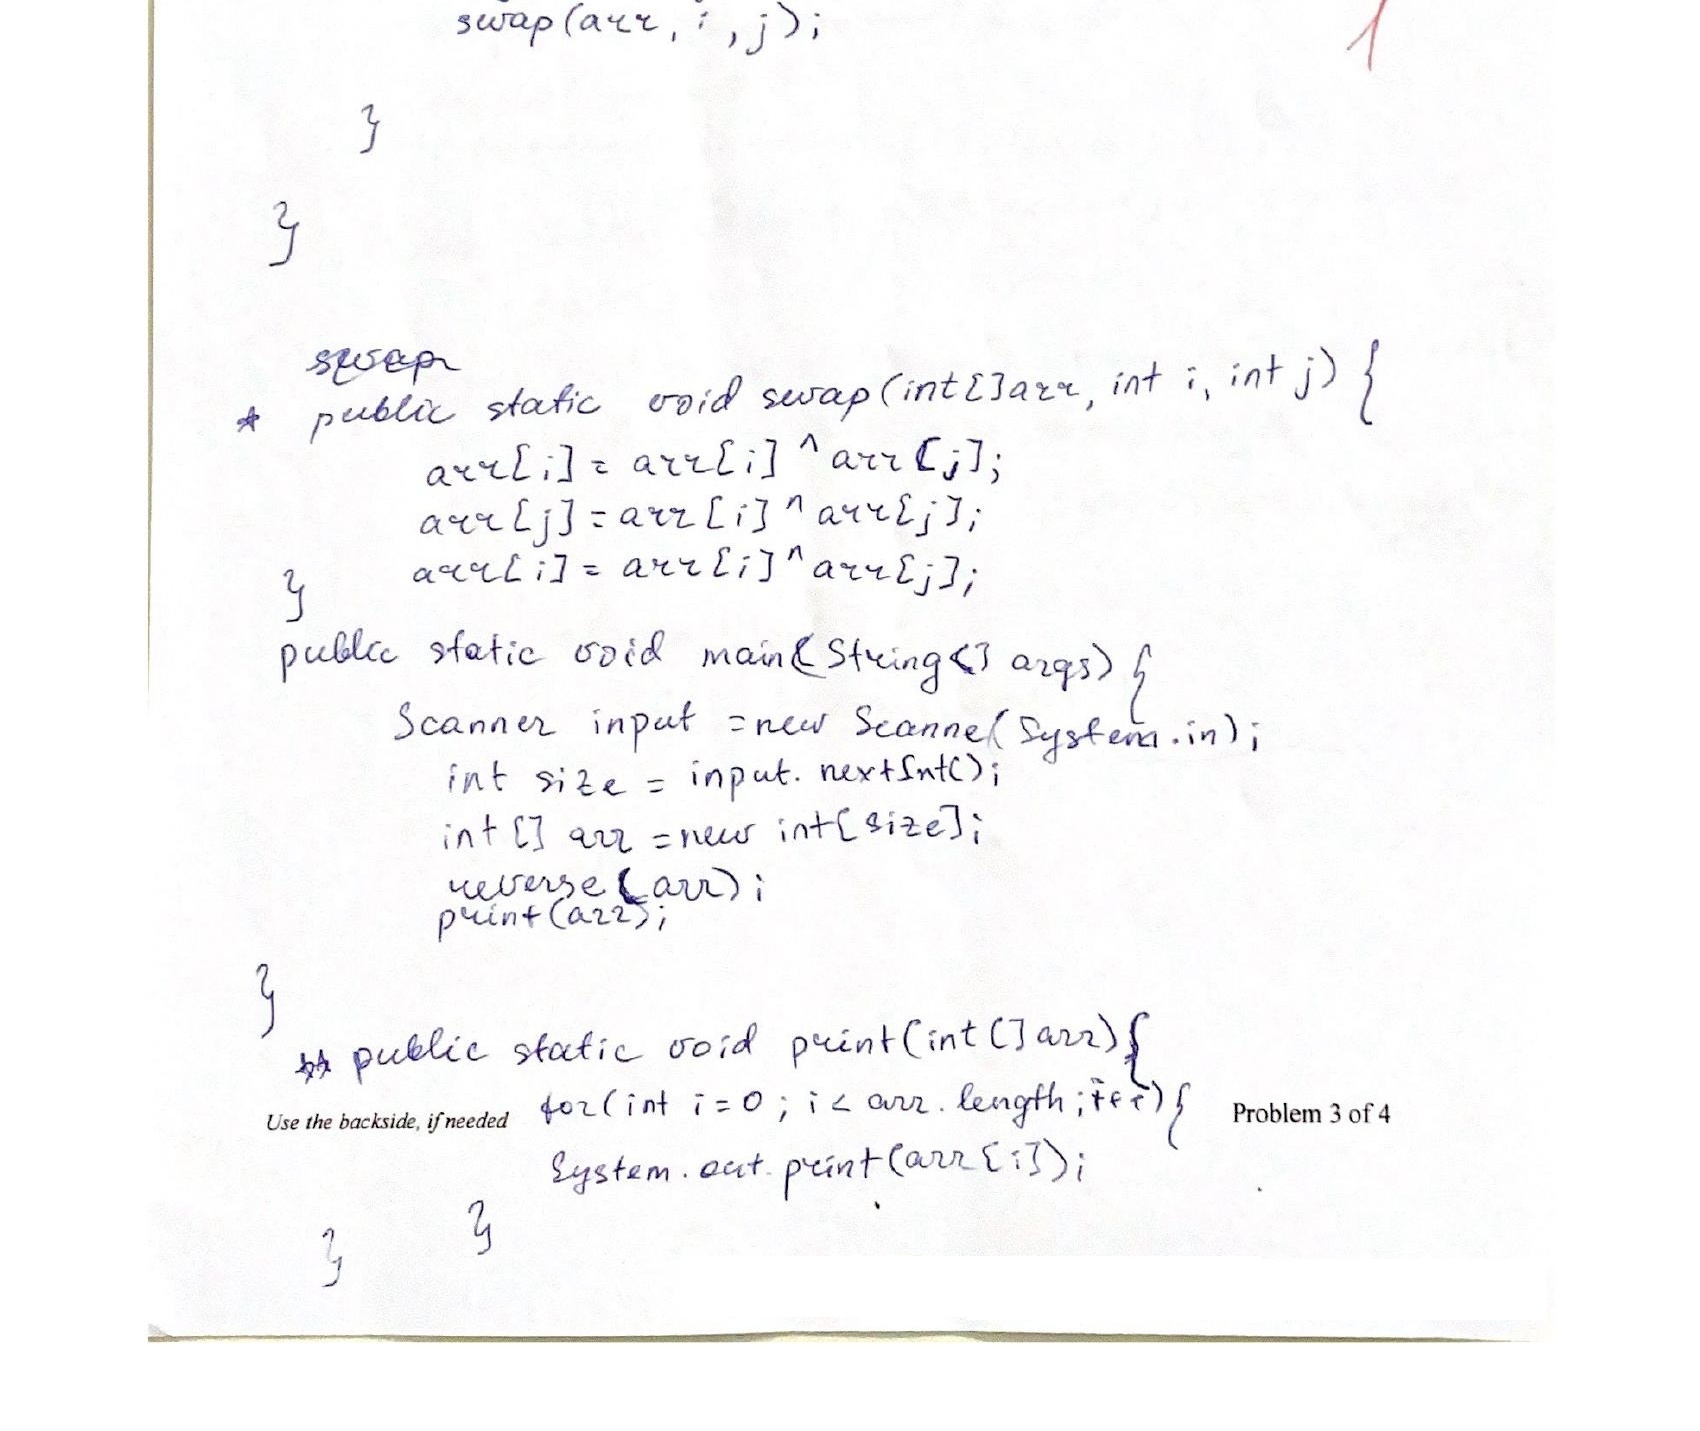 swap(arr, i, j);
1
}
}
swap
* public static void swap(int[]arr, int i, int j) {
arr[i] = arr[i] ^ arr[j];
arr[j] = arr[i] ^ arr[j];
arr[i] = arr[i] ^ arr[j];
}
public static void main(String[] args) {
Scanner input = new Scanne(System.in);
int size = input.nextInt();
int [] arr = new int[size];
reverse(arr);
print(arr);
}
** public static void print(int []arr){
for(int i=0; i< arr.length; i++){
Use the backside, if needed
Problem 3 of 4
System.out.print(arr[i]);
}
}